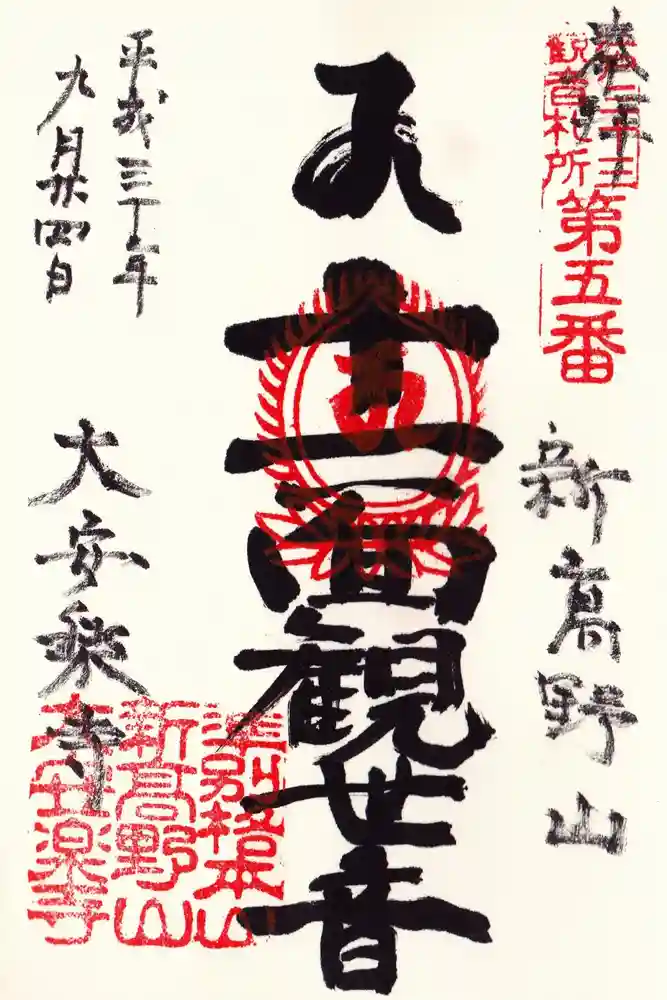 奉拝
江戸三十三
観音札所
第五番
新高野山
十一面観世音
大安楽寺
平成三十年
九月廿四日
準別格本山
新高野山
大安楽寺